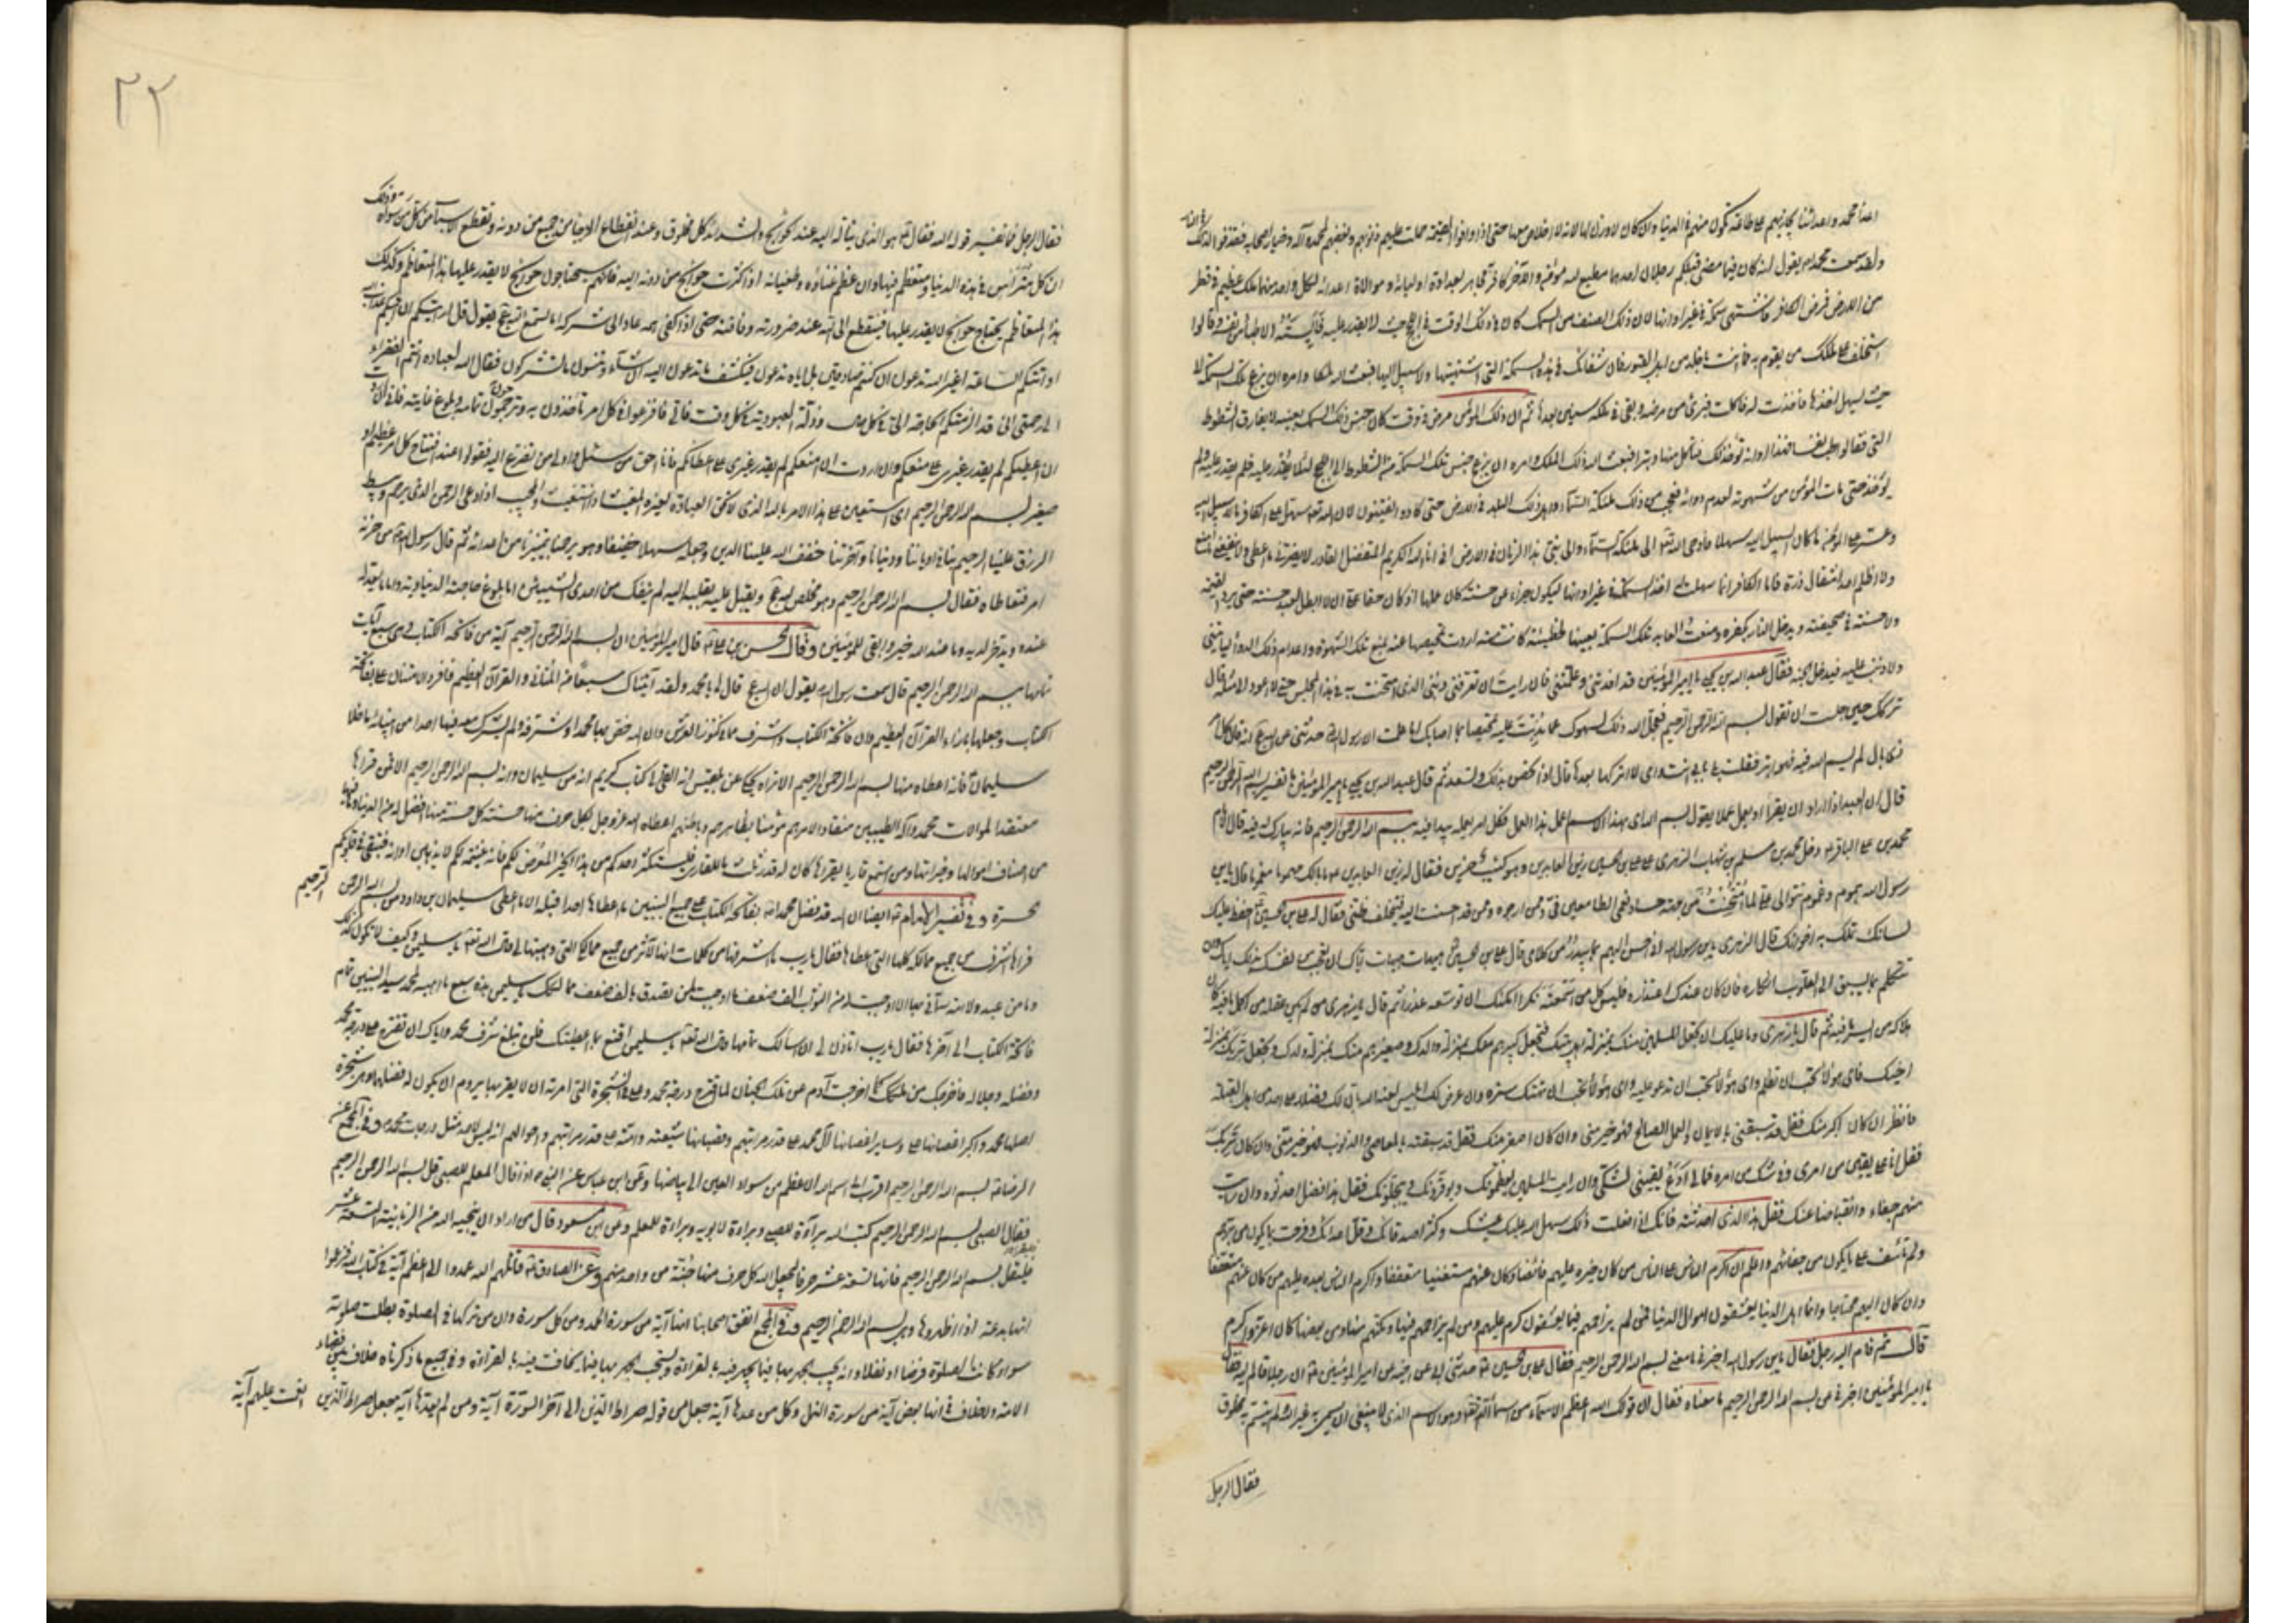 اعداء محمد واعداءنا يجازيهم على طاعة تكون منهم في الدنيا وان كان لا وزن لها لانه لا اخلاص معها حتى اذا وافوا القيمة حملت عليهم ذنوبهم وبغضهم لمحمد وآله وخيار اصحابه فقذفوا لذلك في النار
ولقد سمعت محمدا يقول انه كان فيما مضى قبلكم رجلان احدهما مطيع لله مؤمن والآخر كافر به مجاهر بعداوة اوليائه وموالاة اعدائه لكل واحد منهما ملك عظيم في قطر
من الارض فمرض الكافر فاشتهى سمكة في غير اوانها لان ذلك الصنف من السمك كان في ذلك الوقت في اللجج حيث لا يقدر عليه فآيسته الاطباء من نفسه وقالوا
استخلف على ملكك من يقوم به فما انت باخلد من اهل القبور فان شفائك في هذه السمكة التي اشتهيتها ولا سبيل اليها فبعث الله ملكا وامره ان يزعج تلك السمكة الى
حيث يسهل اخذها فاخذت له فاكلها فبرئ من مرضه وبقي في ملكه سنين بعدها ثم ان ذلك المؤمن مرض في وقت كان جنس ذلك السمك بعينه لا يفارق الشطوط
التي
لا يقدر عليه فلم
يؤخذ حتى مات المؤمن من شهوته لعدم دوائه فعجب من ذلك ملئكة السماء واهل ذلك البلد في الارض حتى كادوا يفتنون لان الله تعالى سهل على الكافر ما لا سبيل اليه
وعسر على المؤمن ما كان السبيل اليه سهلا فاوحى الله الى ملئكة السماء والى نبي ذلك الزمان في الارض اني انا الله الكريم المتفضل القادر لا يضرني ما اعطي ولا ينقصني ما امنع
ولا اظلم احدا مثقال ذرة فاما الكافر فانما سهلت له اخذ السمكة في غير اوانها ليكون جزاء على حسنة كان عملها اذ كان حقا علي ان لا ابطل لاحد حسنة حتى يرد القيمة
ولا حسنة في صحيفته ويدخل النار بكفره ومنعت العابد تلك السمكة بعينها لخطيئة كانت منه اردت تمحيصها عنه بمنع تلك الشهوة واعدام ذلك الدواء ليأتيني
ولا ذنب عليه فيدخل الجنة فقال عبد الله بن يحيى يا امير المؤمنين قد افدتني وعلمتني فان رايت ان تعرفني ذنبي الذي امتحنت به في هذا المجلس حتى لا اعود الى مثله قال
تركك حين جلست ان تقول بسم الله الرحمن الرحيم فجعل الله ذلك لسهوك عما ندبت اليه تمحيصا بما اصابك اما علمت ان رسول الله حدثني عن الله عز وجل انه قال كل امر
ذي بال لم يسم الله فيه فهو ابتر فقلت بلى بابي انت وامي لا اتركها بعدها قال اذا تحصن بذلك وتسعد ثم قال عبد الله بن يحيى يا امير المؤمنين ما تفسير بسم الله الرحمن الرحيم
قال ان العبد اذا اراد ان يقرأ او يعمل عملا يقول بسم الله اي بهذا الاسم اعمل هذا العمل فكل امر يعمله يبدأ فيه ببسم الله الرحمن الرحيم فانه يبارك له فيه قال الامام
محمد بن علي الباقر دخل محمد بن مسلم بن شهاب الزهري على علي بن الحسين زين العابدين وهو كئيب حزين فقال له زين العابدين ما بالك مهموما مغموما قال يا بن
رسول الله هموم وغموم تتوالى علي لما امتحنت من جهة حساد نعمي والطامعين في وممن ارجوه وممن قد احسنت اليه فيخلف ظني فقال له علي بن الحسين احفظ عليك
لسانك تملك به اخوانك قال الزهري يا بن رسول الله اني احسن اليهم بما يبدر من كلامي قال علي بن الحسين هيهات هيهات اياك ان تعجب من نفسك بذلك واياك ان
تتكلم بما يسبق الى القلوب انكاره وان كان عندك اعتذاره فليس كل من تسمعه نكرا يمكنك ان توسعه عذرا ثم قال يا زهري من لم يكن عقله من اكمل ما فيه كان
هلاكه من ايسر ما فيه ثم قال يا زهري وما عليك ان تجعل المسلمين منك بمنزلة اهل بيتك فتجعل كبيرهم منك بمنزلة والدك وصغيرهم منك بمنزلة ولدك وتجعل تربك منهم بمنزلة
اخيك فاي هؤلاء تحب ان تظلم واي هؤلاء تحب ان تدعو عليه واي هؤلاء تحب ان تهتك ستره وان عرض لك ابليس لعنه الله بان لك فضلا على احد من اهل القبلة
فانظر ان كان اكبر منك فقل قد سبقني بالايمان والعمل الصالح فهو خير مني وان كان اصغر منك فقل قد سبقته بالمعاصي والذنوب فهو خير مني وان كان تربك
فقل انا على يقين من امري وفي شك من امره فما لي ادع يقيني لشكي وان رايت المسلمين يعظمونك ويوقرونك ويبجلونك فقل هذا فضل احدثوه وان رايت
منهم جفاء وانقباضا عنك فقل هذا الذي احدثته فانك اذا فعلت ذلك سهل الله عليك عيشك وكثر اصدقائك وقل اعدائك وفرحت بما يكون من برهم
ولم تأسف على ما يكون من جفائهم واعلم ان اكرم الناس على الناس من كان خيره عليهم فائضا وكان عنهم مستغنيا متعففا واكرم الناس بعده عليهم من كان عنهم متعففا
وان كان اليهم محتاجا وانما اهل الدنيا يعشقون اموال الدنيا فمن لم يزاحمهم فيما يعشقون كرم عليهم ومن لم يزاحمهم فيها ومكنهم منها ومن بعضها كان اعز واكرم
قال ثم قام اليه رجل فقال يا بن رسول الله اخبرني ما معنى بسم الله الرحمن الرحيم فقال علي بن الحسين حدثني ابي عن اخيه عن امير المؤمنين ان رجلا قام اليه فقال
يا امير المؤمنين اخبرني عن بسم الله الرحمن الرحيم ما معناه فقال ان قولك الله اعظم الاسماء من اسماء الله تعالى وهو الاسم الذي لا ينبغي ان يسمى به غير الله لم يتسم به مخلوق
فقال الرجل
٢٢
فقال الرجل فما تفسير قوله الله فقال هو الذي يتأله اليه عند الحوائج والشدائد كل مخلوق وعند انقطاع الرجاء من جميع من دونه وتقطع الاسباب من كل من سواه وذلك
ان كل مترئس في هذه الدنيا ومتعظم فيها وان عظم غناؤه وطغيانه اذا كثرت حوائج من دونه اليه فانهم سيحتاجون حوائج لا يقدر عليها هذا المتعاظم وكذلك
هذا المتعاظم يحتاج حوائج لا يقدر عليها فينقطع الى الله عند ضرورته وفاقته حتى اذا كفى همه عاد الى شركه اما تسمع الله عز وجل يقول قل ارايتكم ان اتيكم عذاب الله
او اتتكم الساعة اغير الله تدعون ان كنتم صادقين بل اياه تدعون فيكشف ما تدعون اليه ان شاء وتنسون ما تشركون فقال الله لعباده ايها الفقراء
الى رحمتي اني قد الزمتكم الحاجة الي في كل حال وذلة العبودية في كل وقت فالي فافزعوا في كل امر تأخذون به وترجون تمامه وبلوغ غايته فاني ان اردت
ان اعطيكم لم يقدر غيري على منعكم وان اردت ان امنعكم لم يقدر غيري على اعطائكم فانا احق من سئل واولى من تضرع اليه فقولوا عند افتتاح كل امر عظيم او
صغير بسم الله الرحمن الرحيم اي استعين على هذا الامر بالله الذي لا تحق العبادة لغيره المغيث اذا استغيث والمجيب اذا دعي الرحمن الذي يرحم ويبسط
الرزق علينا الرحيم بنا في ادياننا ودنيانا وآخرتنا خفف الله علينا الدين وجعله سهلا خفيفا وهو يرحمنا بتميزنا من اعدائه ثم قال رسول الله من حزنه
امر تعاطاه فقال بسم الله الرحمن الرحيم وهو مخلص لله ويقبل عليه بقلبه اليه لم ينفك من احدى اثنتين اما بلوغ حاجته الدنياوية واما ما يعد له
عنده ويدخر لديه وما عند الله خير وابقى للمؤمنين وقال الحسن بن علي قال امير المؤمنين ان بسم الله الرحمن الرحيم آية من فاتحة الكتاب وهي سبع آيات
تمامها بسم الله الرحمن الرحيم قال سمعت رسول الله يقول ان الله قال لي يا محمد ولقد آتيناك سبعا من المثاني والقرآن العظيم فافرد الامتنان علي بفاتحة
الكتاب وجعلها بازاء القرآن العظيم وان فاتحة الكتاب اشرف ما في كنوز العرش وان الله خص بها محمدا وشرفه ولم يشرك معه فيها احدا من انبيائه ما خلا
سليمان فانه اعطاه منها بسم الله الرحمن الرحيم الا تراه يحكي عن بلقيس اني القي الي كتاب كريم انه من سليمان وانه بسم الله الرحمن الرحيم الا فمن قرأها
معتقدا لموالات محمد وآله الطيبين منقادا لامرهم مؤمنا بظاهرهم وباطنهم اعطاه الله عز وجل بكل حرف منها حسنة كل حسنة منها افضل له من الدنيا وما فيها
من اصناف اموالها وخيراتها ومن استمع قاريا يقرأها كان له قدر ثلث ما للقاري فليستكثر احدكم من هذا الخير المعرض لكم فانه غنيمة لكم لا يذهبن اوانه فتبقى في قلوبكم
حسرة وفي تفسير الامام ايضا ان الله قد فضل محمدا بفاتحة الكتاب على جميع النبيين ما اعطاها احدا قبله الا ما اعطى سليمان بن داود من بسم الله الرحمن الرحيم
فرآها اشرف من جميع ممالكه كلها التي اعطاها فقال يا رب ما اشرفها من كلمات انها لآثر من جميع ممالكي التي وهبتها لي قال الله تعالى يا سليمن وكيف لا تكون كذلك
وما من عبد ولا امة سماني بها الا اوجبت له من الثواب الف ضعف ما اوجبت لمن تصدق بالف ضعف ممالكك يا سليمن هذه سبع ما اهبه لمحمد سيد النبيين تمام
فاتحة الكتاب الى آخرها فقال يا رب اتأذن لي ان اسألك تمامها قال الله تعالى يا سليمن اقنع بما اعطيتك فلن تبلغ شرف محمد واياك ان تقترح علي درجة محمد
وفضله وجلاله فاخرجك من ملكك كما اخرجت آدم من تلك الجنان لما اقترح درجة محمد وعلي في الشجرة التي امرته ان لا يقربها يروم ان يكون له فضلهما وهي شجرة
اصلها محمد واكبر اغصانها علي وساير اغصانها آل محمد على قدر مراتبهم وقضبانها شيعته وامته على قدر مراتبهم واحوالهم انه ليس لاحد مثل درجات محمد وفي المجمع عن
الرضا بسم الله الرحمن الرحيم اقرب الى اسم الله الاعظم من سواد العين الى بياضها وعن ابن عباس عن النبي اذا قال المعلم للصبي قل بسم الله الرحمن الرحيم
فقال الصبي بسم الله الرحمن الرحيم كتب الله براءة للصبي وبراءة لابويه وبراءة للمعلم وعن ابن مسعود قال من اراد ان ينجيه الله من الزبانية التسعة عشر
فليقل بسم الله الرحمن الرحيم فانها تسعة عشر حرفا ليجعل الله كل حرف منها جنة من واحد منهم وعن الصادق ما لهم قاتلهم الله عمدوا الى اعظم آية في كتاب الله فزعموا
انها بدعة اذا اظهروها وهي بسم الله الرحمن الرحيم وفي المجمع اتفق اصحابنا انها آية من سورة الحمد ومن كل سورة وان من تركها في الصلوة بطلت صلوته
سواء كانت الصلوة فرضا او نفلا وانه يجب الجهر بها فيما يجهر فيه بالقراءة ويستحب الجهر بها فيما يخافت فيه بالقراءة وفي جميع ما ذكرناه خلاف بين فقهاء
الامة ولا خلاف في انها بعض آية من سورة النمل وكل من عدها آية جعل من قوله صراط الذين الى آخر السورة آية ومن لم يعدها آية جعل صراط الذين انعمت عليهم آية